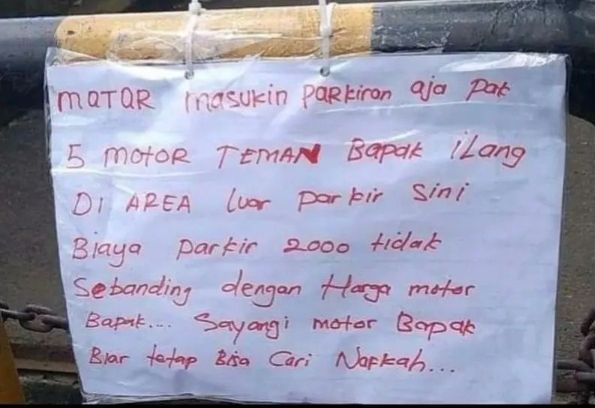 MOTOR masukin parkiran aja pak
5 motor TEMAN Bapak iLang
DI AREA luar parkir sini
Biaya parkir 2000 tidak
Sebanding dengan Harga motor
Bapak.... Sayangi motor Bapak
Biar tetap Bisa Cari Nafkah...